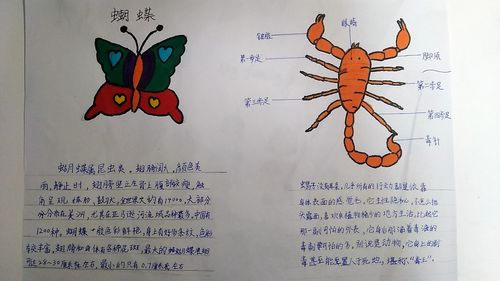 蝴蝶
眼睛
钳肢
脚须
第一步足
第二步足
第三步足
第四步足
毒针
蝴蝶属昆虫类，翅膀阔大，颜色美
丽，静止时，翅膀竖立在背上，腹部瘦瘦，触
角呈现棒状，全世界大约有14000，大部分
分布在美洲，尤其在亚马逊河流域品种最多，中国有
1200种，蝴蝶一般色彩鲜艳，身上有好多条纹，色彩
较丰富，翅膀和身体有各种花斑，最大的蝴蝶展翅
可达28~30厘米左右，最小的只有0.7厘米左右
蝎子没有耳朵，几乎所有的行动都是依靠
身体表面的感觉毛，它生性隐秘，不
大露面，喜欢在植物稀少的地方生活，比起它
那一副可怕的外表，它身后那涌着毒液的
毒刺要可怕的多，别说是动物，它身上的剧
毒甚至能至人于死地，堪称"毒王"。